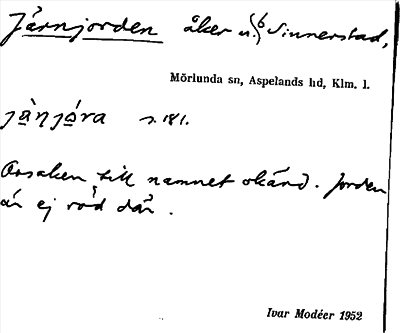 Järnjorden åker u. Sinnerstad,
Mörlunda sn, Aspelands hd, Klm. l.
jà̤ɳjó̤ra s. 181.
Orsaken till namnet okänd. Jorden
är ej röd där.
Ivar Modéer 1952